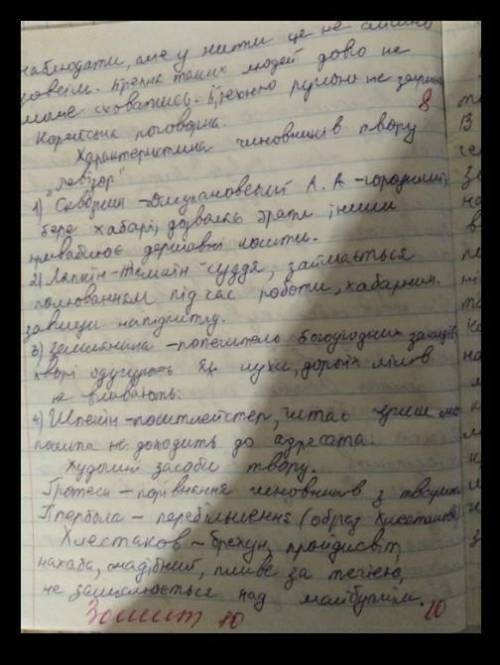 наблюдати, але у житті це не
зовсім. таких людей довго не
може сховатись. не
Корейська поговорка. 8
Характеристика чиновників твору
"Ревізор"
1) Сквозник-Дмухановський А. А - городничий,
бере хабарі, дозволяє брати іншим
привабнює державні кошти.
2) Ляпкін-Тяпкін суддя, займається
полюванням під час роботи, хабарник.
завжди напідпитку.
3) Земляника - попечитель богоугодних закладів,
хворі одужують як мухи, дорогих ліків
не вживають.
4) Шпекін - поштмейстер, читає чужі
пошта не доходить до адресата.
Художні засоби твору.
Гротеск - порівняння чиновників з тварин
Гіпербола - перебільшення (образ Хлестаков)
Хлестаков - брехун, пройдисвіт,
нахаба, жадібний, пливе за течією,
не замислюється над майбутнім.
Зошит 10 10